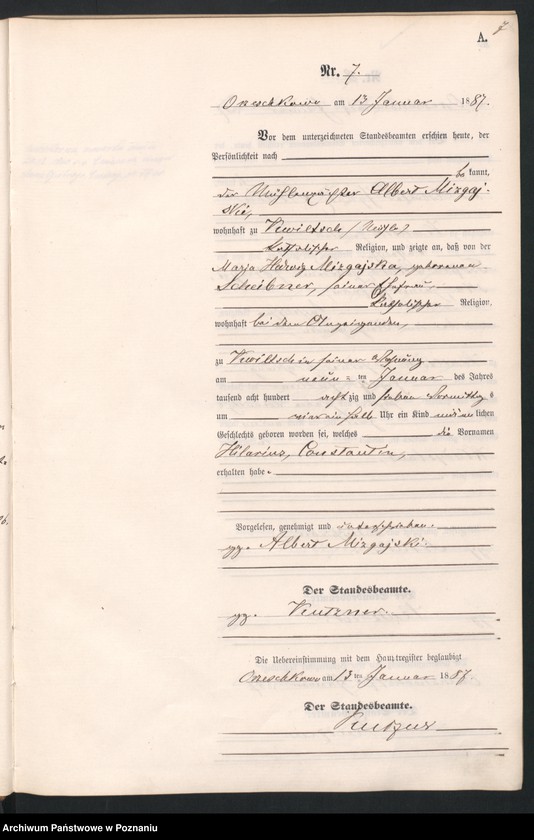 7
A.
Nr. 7.
Orzeschkowo am 13 Januar 1887.
Vor dem unterzeichneten Standesbeamten erschien heute, der
Persönlichkeit nach
be kannt,
der Mühlenpächter Albert Mizgaj-
ski,
wohnhaft zu Kwiltsch (Mühle)
katholischer Religion, und zeigte an, daß von der
Maria Hedwig Mizgajska, geborenen
Scheibner, seiner Ehefrau,
katholischer Religion,
wohnhaft bei dem Anzeigenden,
zu Kwiltsch in seiner Wohnung
am neun ten Januar des Jahres
tausend acht hundert achtzig und sieben Vormittag s
um vier ein halb Uhr ein Kind männlichen
Geschlechts geboren worden sei, welches die Vornamen
Hilarius, Constantin,
erhalten habe.
Vorgelesen, genehmigt und unterschrieben.
gg. Albert Mizgajski.
Der Standesbeamte.
gg.
Die Uebereinstimmung mit dem Hauptregister beglaubigt
Orzeschkowo am 13 ten Januar 1887.
Der Standesbeamte.
Archiwum Państwowe w Poznaniu